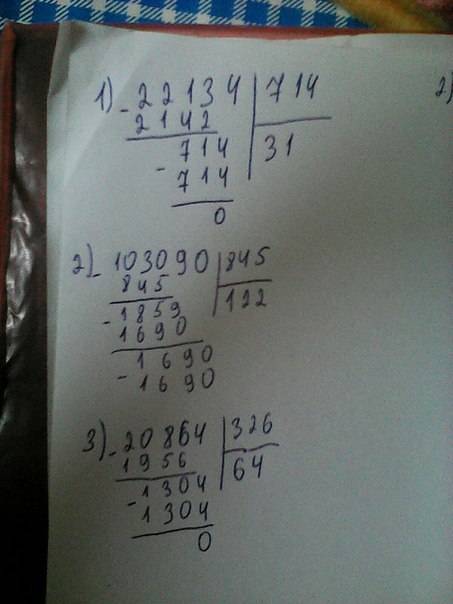 1) - 22134 | 714
2142 | 31
- 714
714
0
2) - 103090 | 845
845 | 122
- 1859
1690
- 1690
1690
3) - 20864 | 326
1956 | 64
- 1304
1304
0
2)